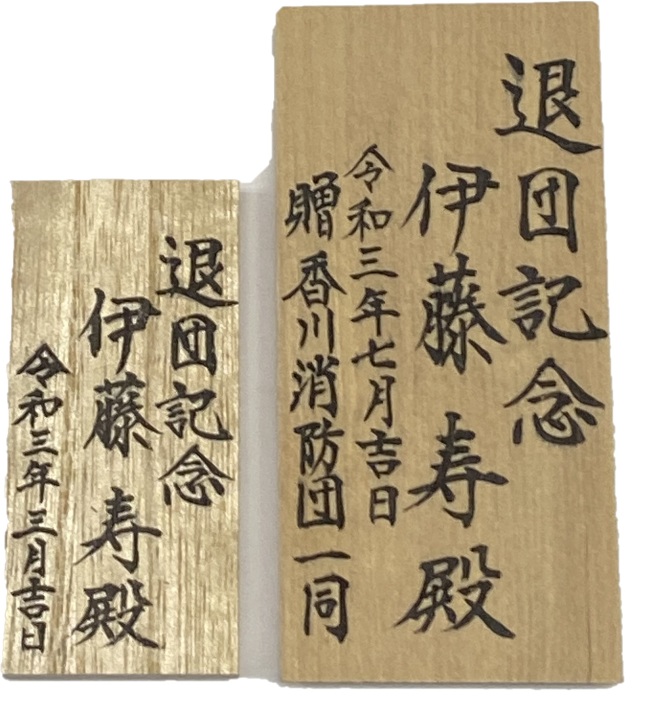 退団記念
伊藤 寿 殿
令和三年七月吉日
贈 香川消防団一同
退団記念
伊藤 寿 殿
令和三年三月吉日